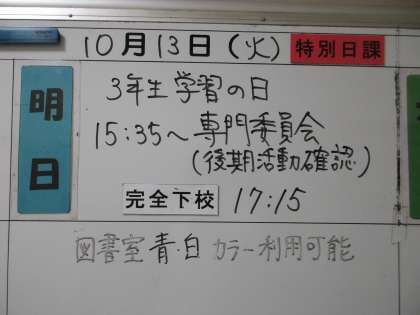 10月13日(火) 特別日課
明日
3年生学習の日
15:35~専門委員会
(後期活動確認)
完全下校 17:15
図書室 青・白 カラー利用可能